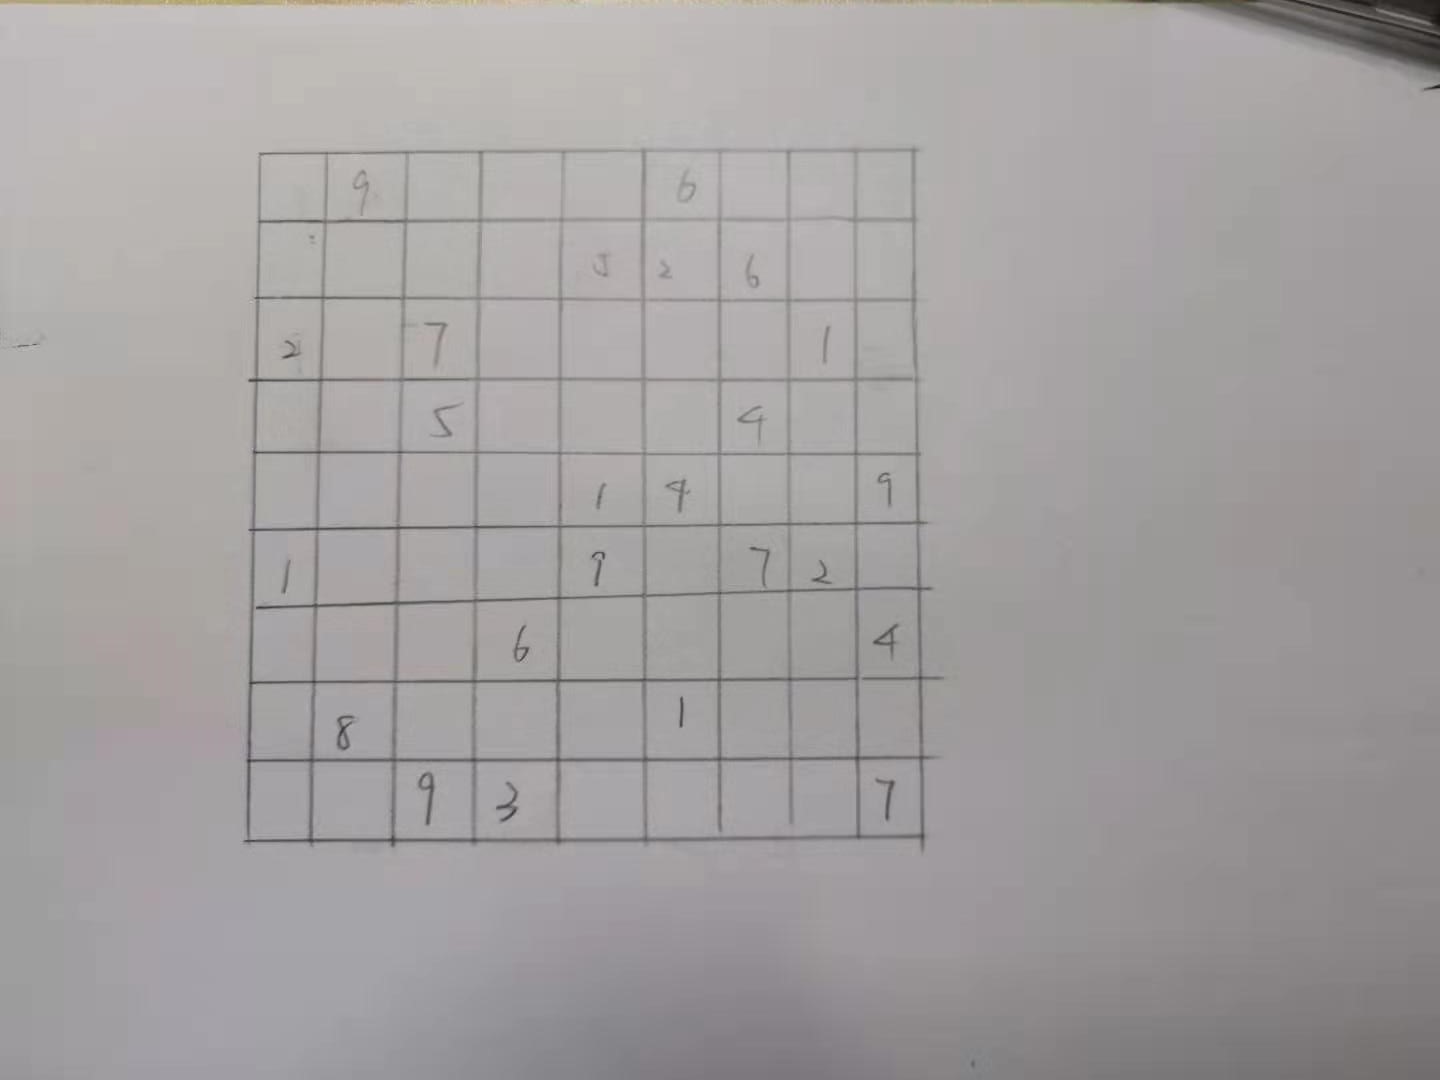 9 6
2 6
2 7 1
5 4
1 4 9
1 9 7 2
6 4
8 1
9 3 7